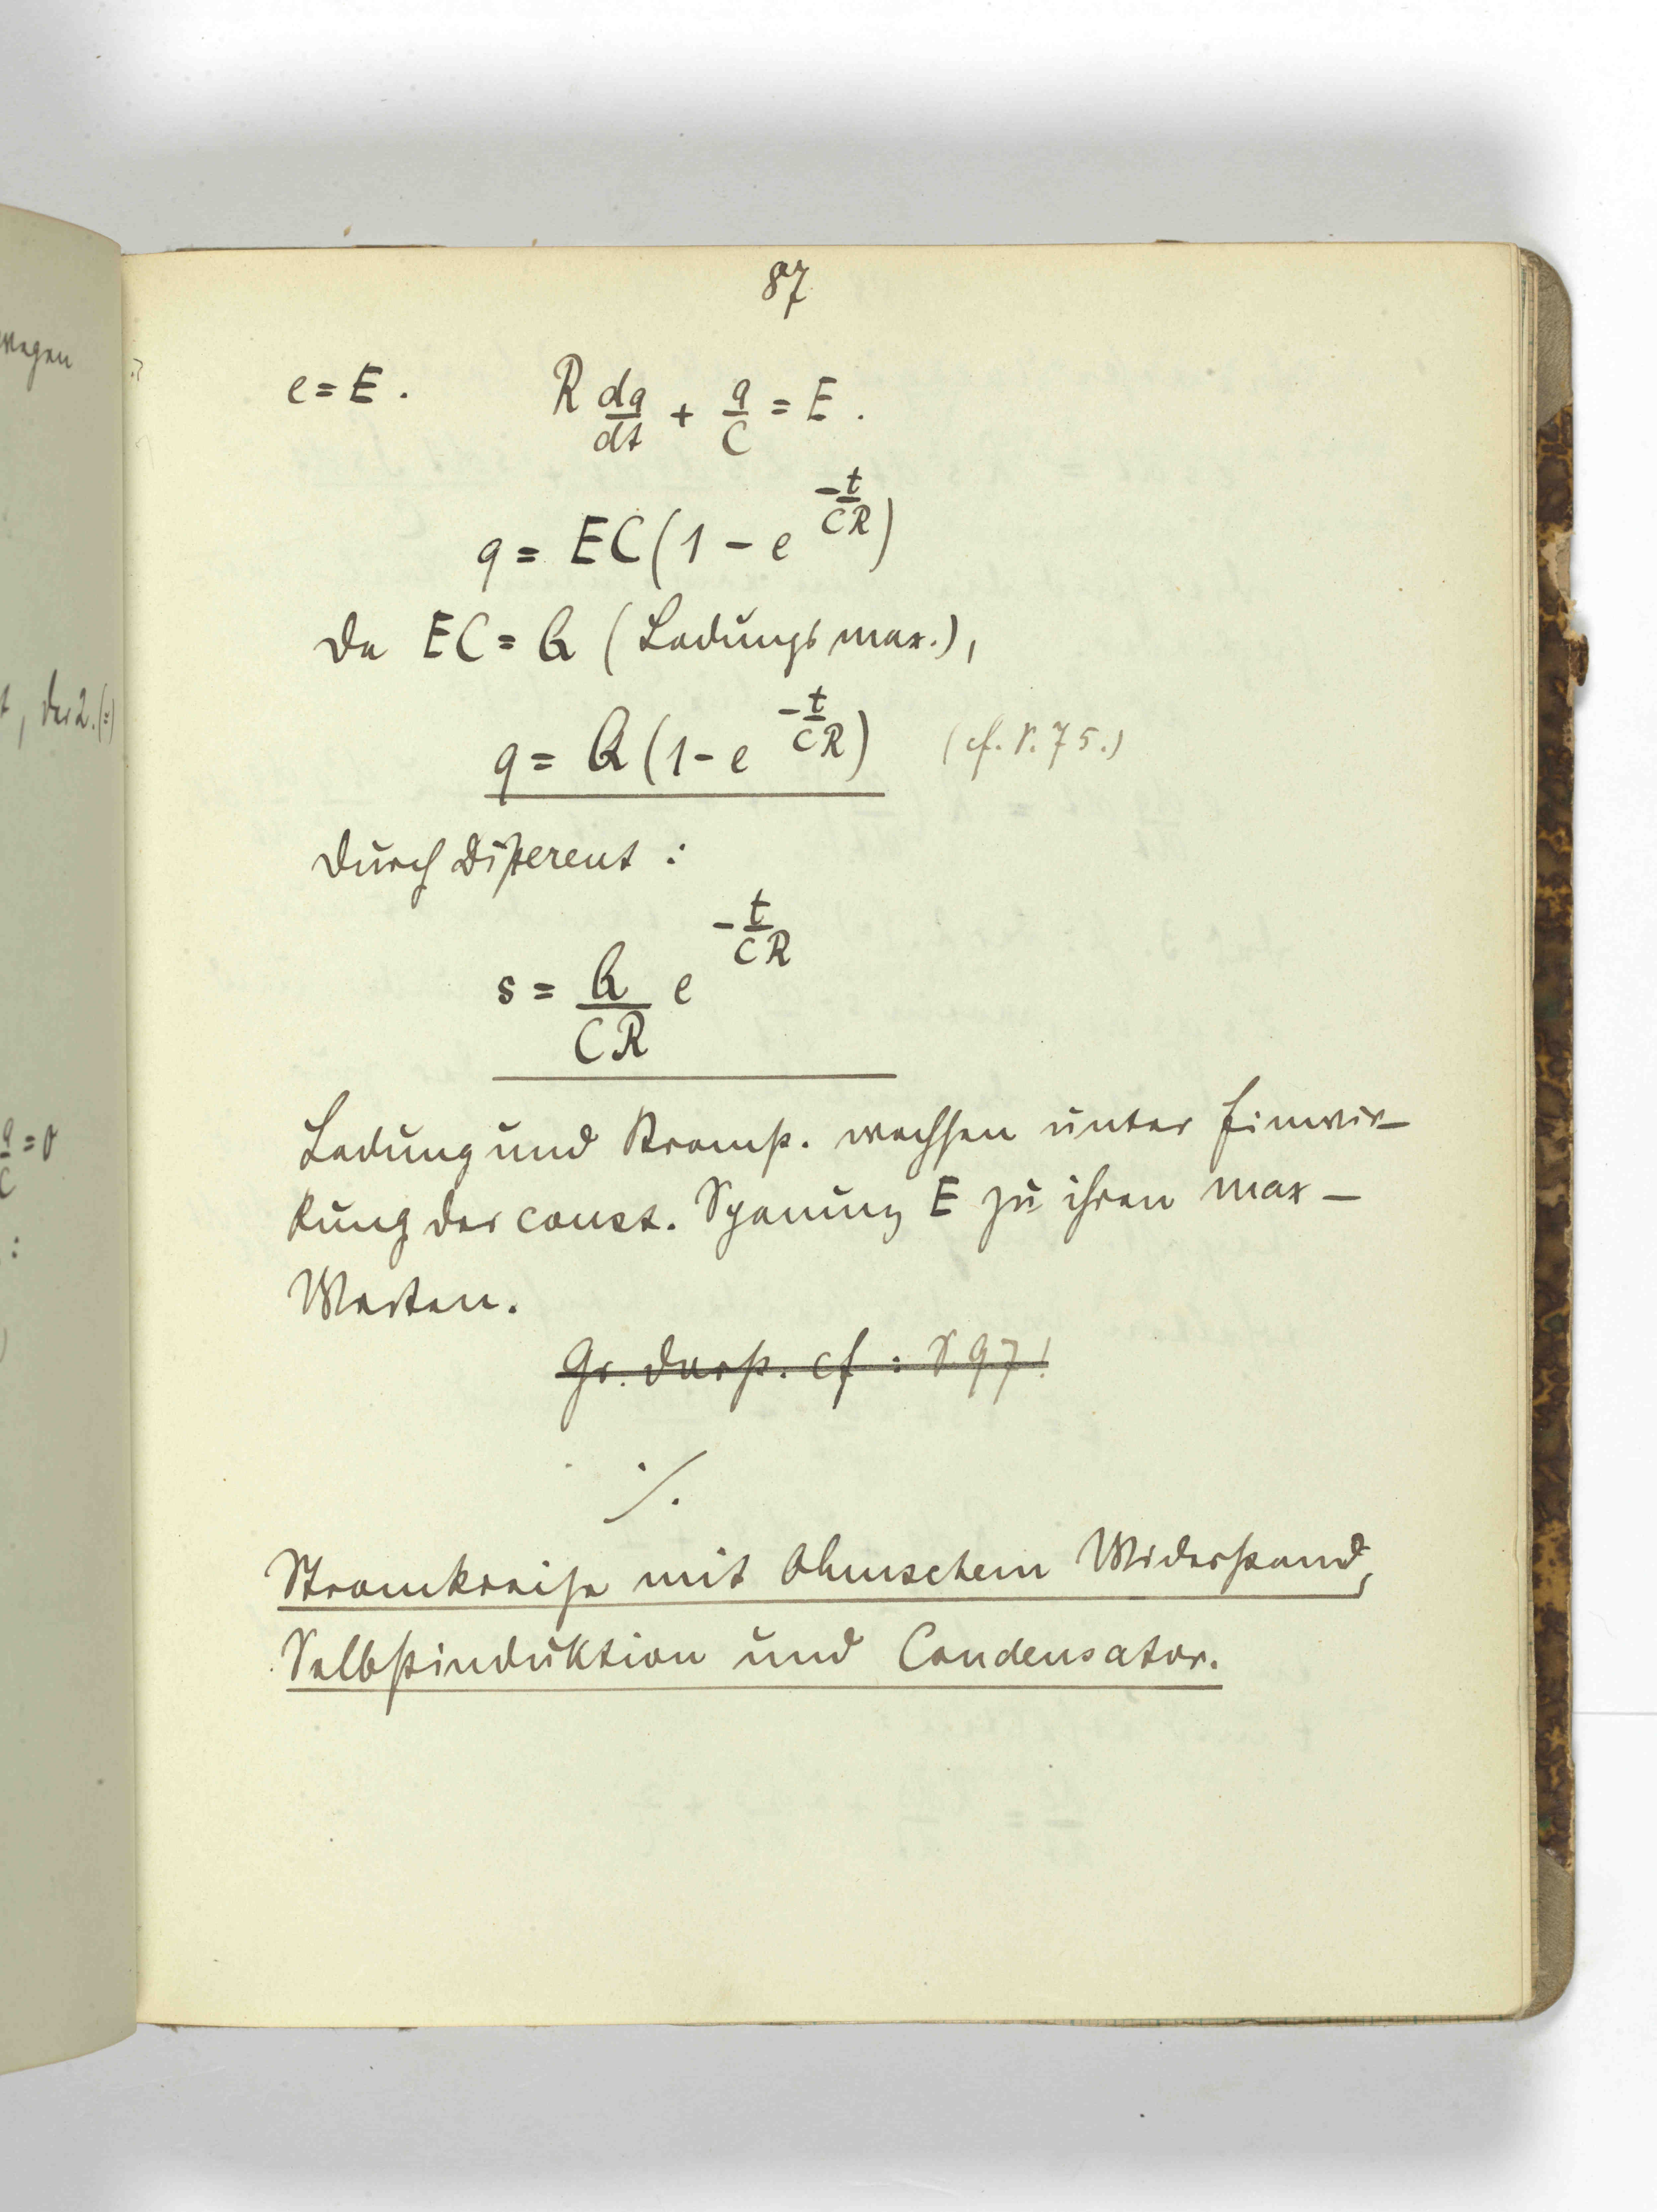 87
e = E. R dq/dt + q/C = E.
q = EC (1 - e^(-t/CR))
Da EC = Q (Ladungsmax.),
q = Q (1 - e^(-t/CR)) (cf. S. 75.)
Durch Different :
s = Q/CR e^(-t/CR)
Ladung und Stromst. wachsen unter Einwir-
kung der const. Spanung E zu ihren max-
Werten.
Gr. Darst. cf : S 97!
·/.
Stromkreise mit Ohmschem Widerstand,
Selbstinduktion und Condensator.
wegen
, der 2.
q/C = 0
: